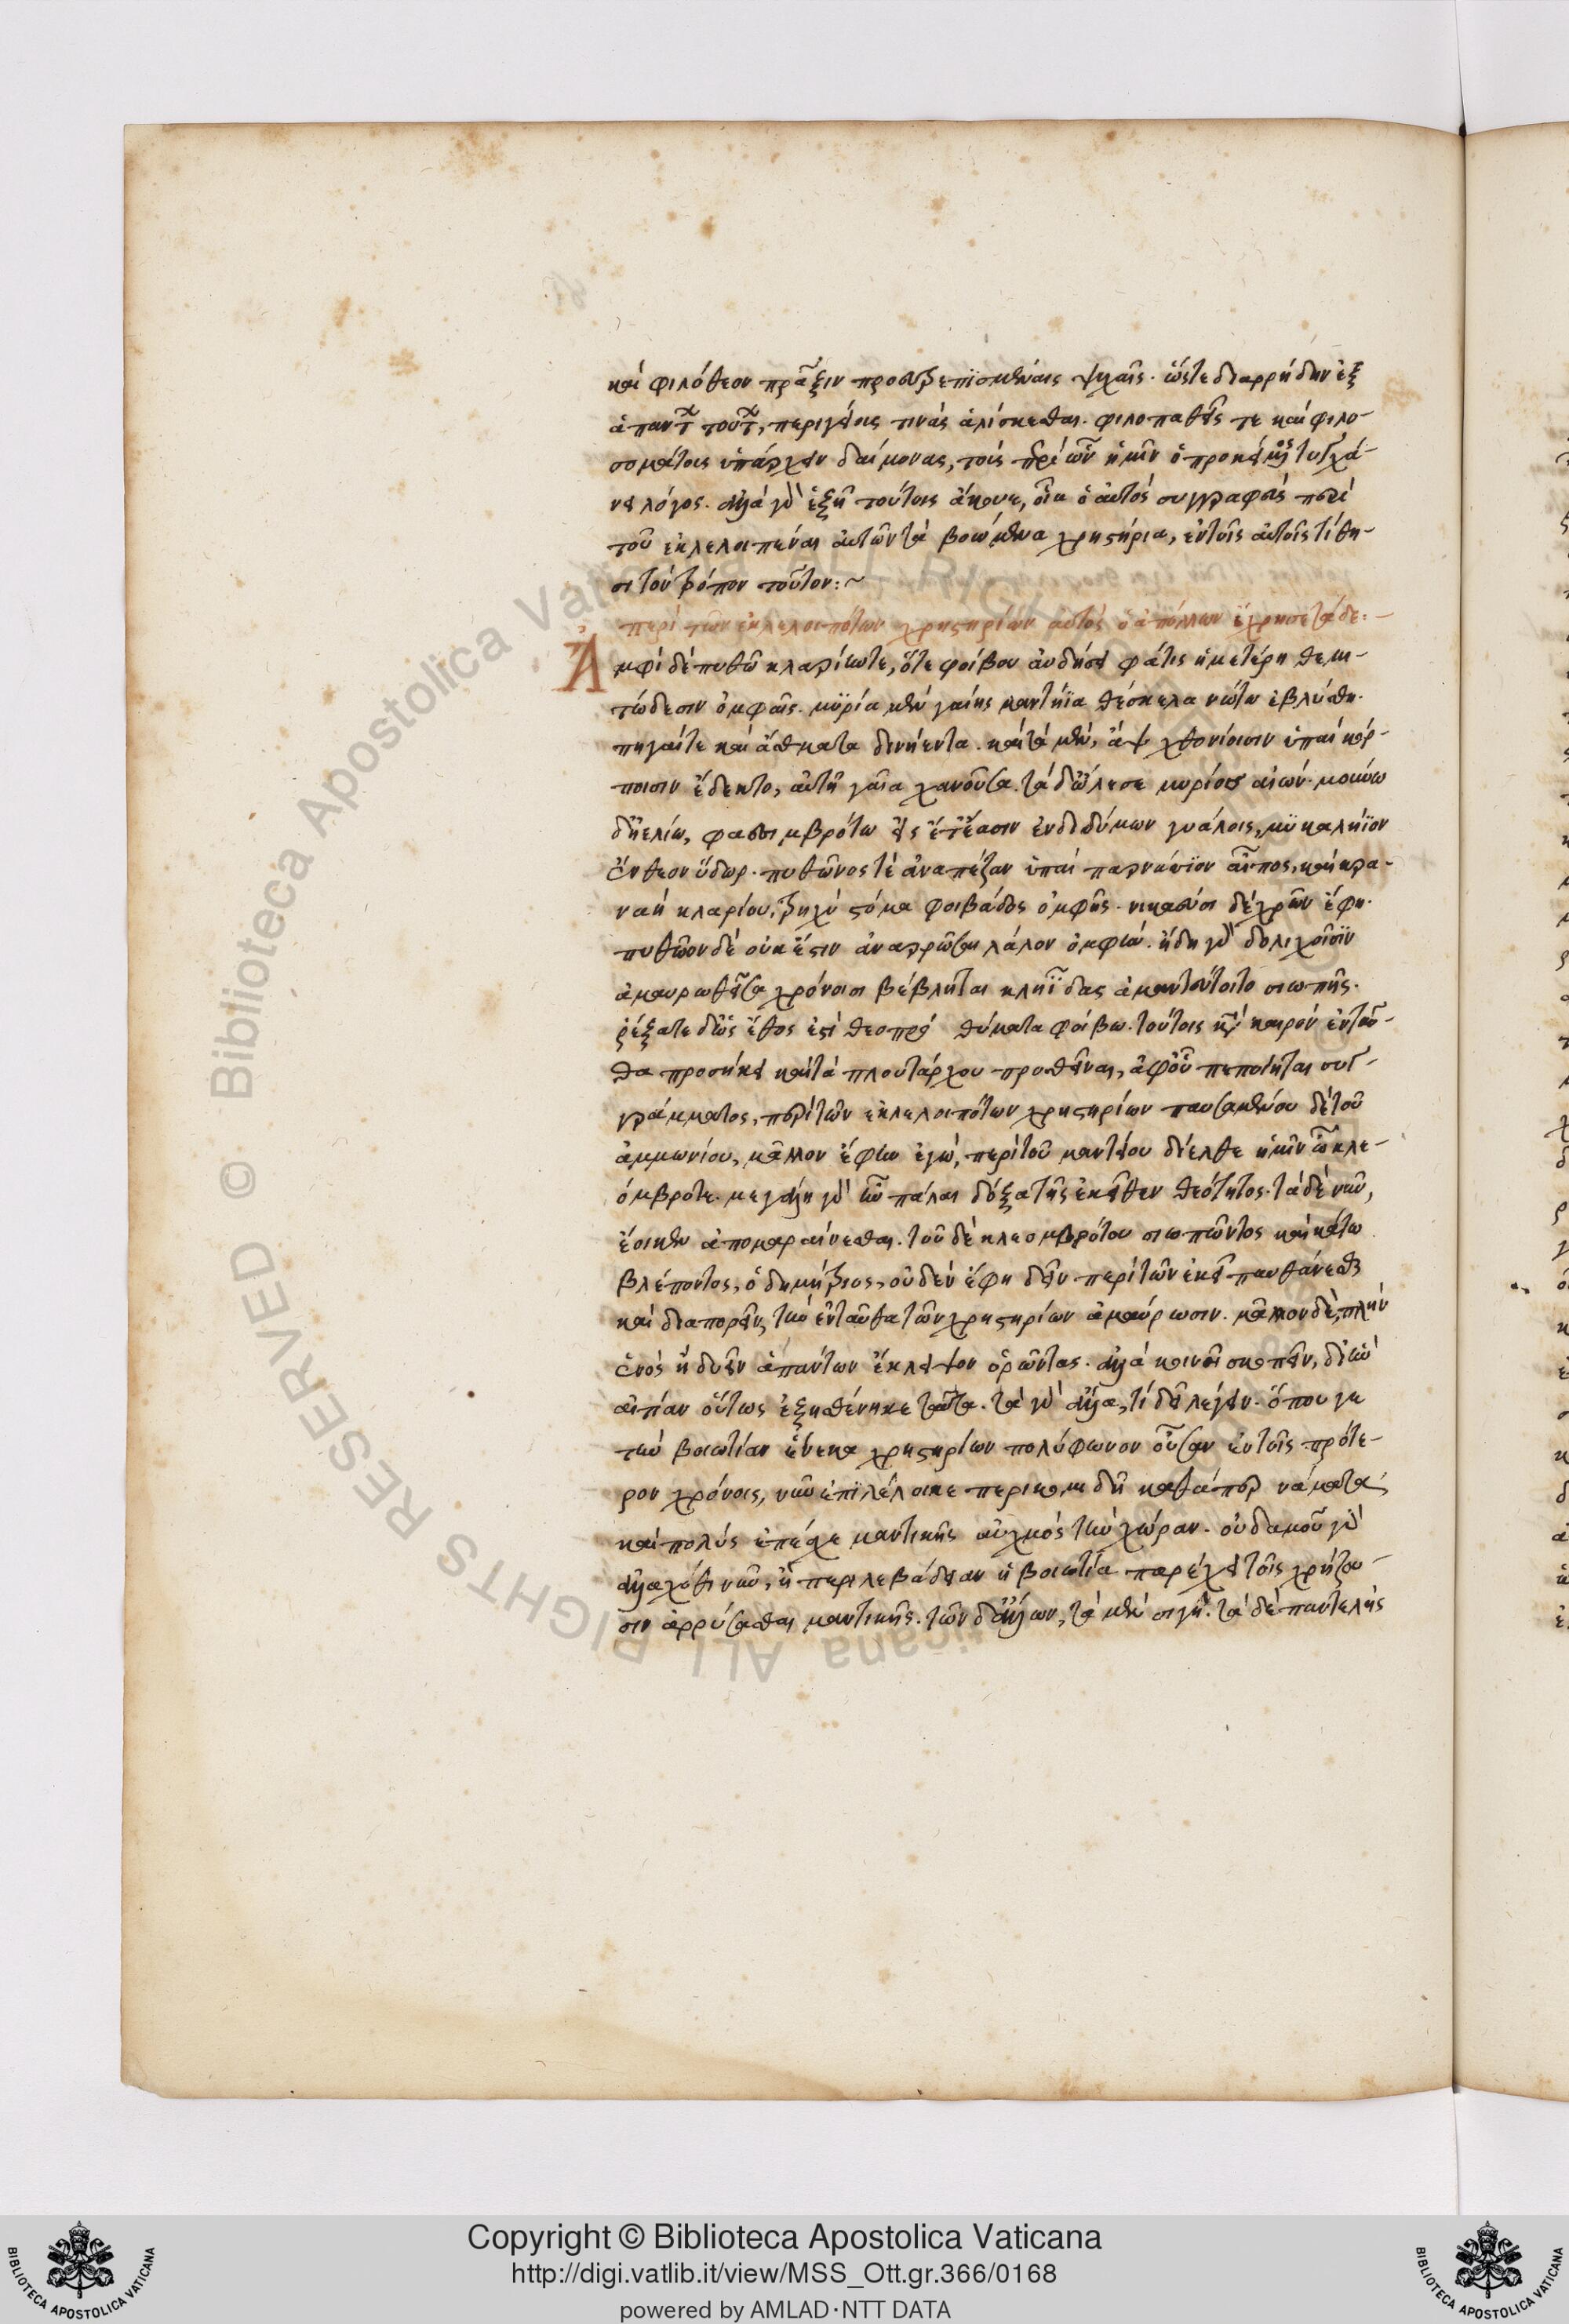 καὶ φιλόθεον πρᾶξιν προτετρεπϊσμέναις ψυχαῖς. ὥςτε διαρρήδην ἐξ
ἁπάντων τούτων, περιγείοις τινὰς ἁλίσκεσθαι. φιλοπαθεῖς τε καὶ φιλο-
σομάτοις ὑπάρχειν δαίμονας, τοὺς περὶ ὧν ἡμῖν ὁ προκείμενος τυγχά-
νει λόγος. ἀλλὰ γὰρ ἑξῆς τούτοις ἄκουε, οἷα ὁ αὐτὸς συγγραφεὺς περὶ
τοῦ ἐκλελοιπέναι αὐτῶν τὰ βοώμενα χρηστήρια, ἐν τοῖς αὐτοῖς τίθη-
σι τοὺτρόπον τοῦτον:~
περὶ τῶν ἐκλελοιπότων χρηστηρίων αὐτὸς ὁ ἀπόλλων ἔχρησε τάδε:-
Ἀμφὶ δὲ πυθῶ κλαρίωτε, ὅτε φοίβου αὐδήσει φάτις ἡμετέρη θεμι-
τώδεσιν ὀμφαῖς. μϋρία μὲν γαίης μαντήϊα θέσκελα νώτω ἐβλύσθη.
πηγαίτε καὶ ἄσθματα δινήεντα. καὶ τὰ μὲν, ἂψ χθονίοισιν ὑπαὶ κόρ-
ποισιν ἔδεκτο, αὐτὴ γαῖα χανοῦσα. τὰ δ' ὤλεσε μυρίος αἰών. μούνω
δ' ἠελίω, φαεσιμβρότω εἰς ἔτ' ἔασιν ἐν διδύμων γυάλοις, μϋκαλήϊον
ἔνθεον ὕδωρ. πυθῶνος τὲ ἀναπέζαν ὑπαὶ παρνάσϊον αἶπος, καὶ κρα-
ναὴ κλαρίου, τρηχὺ στόμα φοιβάδος ὀμφῆς. νικαεῦσι δέχρῶν ἔφη.
πυθῶον δὲ οὐκ ἔστιν ἀναρρῶσαι λάλον ὀμφὴν. ἤδη γὰρ δολιχοῖσϊν
ἀμαυρωθεῖσα χρόνοισι βέβληται κληῗδας ἀμαντεύτοιο σιωπῆς.
ῥέξατε δ' ὡς ἔθος ἐστὶ θεοπρό θύματα φοίβω. τούτοις κατὰ καιρὸν ἐνταῦ-
θα προσήκει καὶ τὰ πλουτάρχου προθεῖναι, ἀφ' οὗ πεποίηται συγ-
γράμματος, περὶ τῶν ἐκλελοιπότων χρηστηρίων παυσαμένου δὲ τοῦ
ἀμμωνίου, μᾶλλον ἔφην ἐγὼ, περὶ τοῦ μαντείου δίελθε ἡμῖν ὦ κλε-
όμβροτε. μεγάλη γὰρ ἦν πάλαι δόξα τῆς ἐκεῖθεν θεότητος. τὰ δὲ νῦν,
ἔοικεν ἀπομαραίνεσθαι. τοῦ δὲ κλεομβρότου σιωπῶντος καὶ κάτω
βλέποντος, ὁ δημήτριος, οὐδὲν ἔφη δεῖν περὶ τῶν ἐκεῖ πυνθάνεσθαι
καὶ διαπορεῖν, τὴν ἐνταῦθα τῶν χρηστηρίων ἀμαύρωσιν. μᾶλλον δὲ, πλὴν
ἑνὸς ἢ δυεῖν ἁπάντων ἔκλειψιν ὁρῶντας. ἀλλὰ κοινῆ σκοπεῖν, δι' ἣν
αἰτίαν οὕτως ἐξησθένηκε ταῦτα. τὰ γὰρ ἄλλα, τί δεῖ λέγειν. ὅπου γε
τὴν βοιωτίαν ἕνεκα χρηστηρίων πολύφωνον οὖσαν ἐν τοῖς πρότε-
ρον χρόνοις, νῦν ἐπϊλέλοιπε περικομιδῆ καθάπερ νάματα
καὶ πολὺς ἐπέσχε μαντικῆς αὐχμὸς τὴν χώραν. οὐδαμοῦ γὰρ
ἀλλαχόθι νῦν, ἢ περὶ λεβάδειαν ἡ βοιωτία παρέχει τοῖς χρήζου-
σιν ἀρρύσασθαι μαντικῆς. τῶν δ' ἄλλων, τὰ μὲν σιγὴ. τὰ δὲ παντελὴς
Copyright © Biblioteca Apostolica Vaticana
http://digi.vatlib.it/view/MSS_Ott.gr.366/0168
powered by AMLAD·NTT DATA